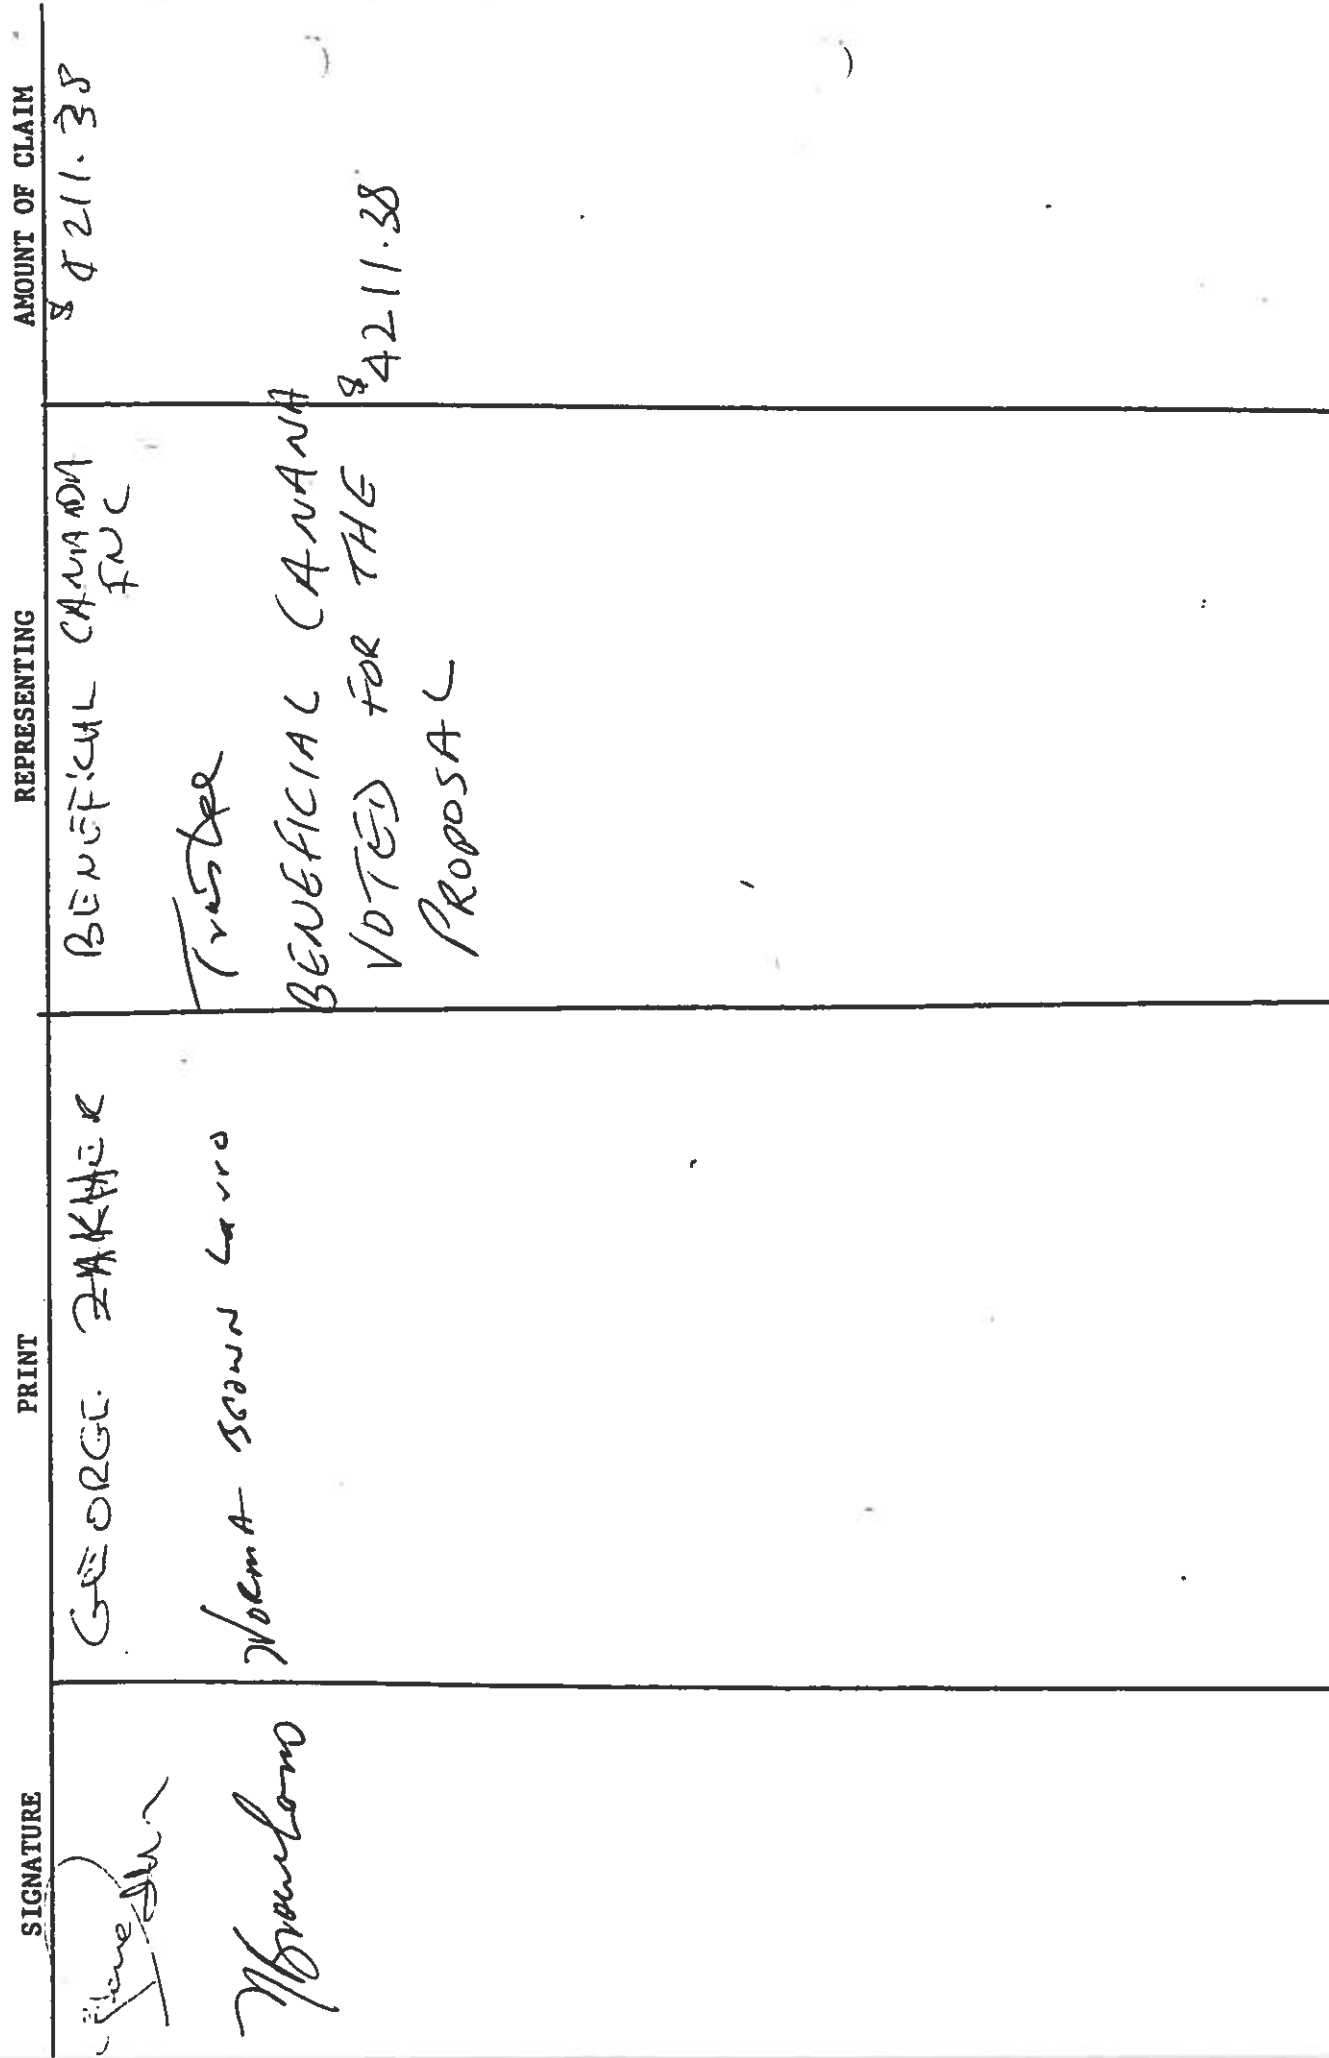 SIGNATURE PRINT REPRESENTING AMOUNT OF CLAIM
GEORGE ZAKHER BENEFICIAL CANADA $ 8211.38
INC
NORMA BROWN Trustee
BENEFICIAL CANANA
VOTED FOR THE $4211.38
PROPOSAL